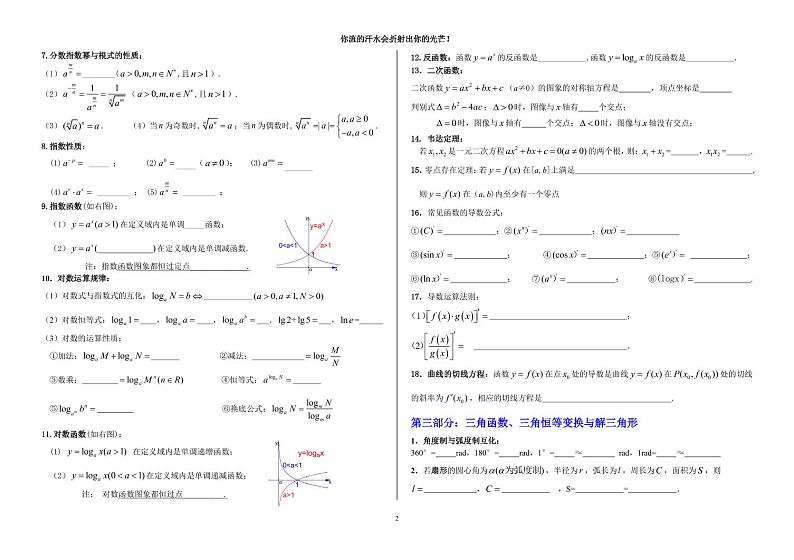 你流的汗水会折射出你的光芒！
7.分数指数幂与根式的性质：
(1) a^{m/n} =_______(a>0,m,n∈N*,且n>1).
(2) a^{-m/n} = 1/a^{m/n} = 1/ⁿ√a^m (a>0,m,n∈N*,且n>1).
(3) (ⁿ√a)^n = a. (4) 当n为奇数时, ⁿ√a^n = a；当n为偶数时, ⁿ√a^n = |a| = {a,a≥0 -a,a<0.
8.指数性质：
(1) a^{-p} = _____； (2) a^0 = _____(a≠0)； (3) a^{mn} = ______
(4) a^r·a^s = ________； (5) a^{m/n} = ________；
9.指数函数(如右图)：
(1) y=a^x(a>1)在定义域内是单调_____函数；
(2) y=a^x(______________)在定义域内是单调减函数.
注：指数函数图象都恒过定点______________.
y=a^x
0<a<1
a>1
1
o
x
10．对数运算规律：
(1) 对数式与指数式的互化：log_a N = b ⇔ ____________(a>0,a≠1,N>0)
(2) 对数恒等式：log_a 1=____, log_a a=____, log_a a^b=___, lg2+lg5=___, ln e=______
(3) 对数的运算性质：
①加法：log_a M + log_a N = _______ ②减法：_____________=log_a M/N
③数乘：_________=log_a M^n(n∈R) ④恒等式：a^{log_a N} = _______
⑤log_{a^m} b^n = __________ ⑥换底公式：log_a N = log_m N/log_m a
11.对数函数(如右图)：
(1) y=log_a x(a>1) 在定义域内是单调递增函数；
(2) y=log_a x(0<a<1)在定义域内是单调递减函数；
注： 对数函数图象都恒过点__________.
y=log_a x
0<a<1
1
a>1
x
2
12.反函数：函数y=a^x的反函数是____________,函数y=log_a x的反函数是____________.
13．二次函数：
二次函数y=ax²+bx+c (a≠0)的图象的对称轴方程是________，顶点坐标是________
判别式Δ=b²-4ac；Δ>0时，图像与x轴有_____个交点；
Δ=0时，图像与x轴有______个交点；Δ<0时，图像与x轴没有交点；
14．韦达定理：
若x₁,x₂是一元二次方程ax²+bx+c=0(a≠0)的两个根，则：x₁+x₂=_______，x₁x₂=______.
15．零点存在定理：若y=f(x)在[a,b]上满足_______________________________________，
则y=f(x)在(a,b)内至少有一个零点
16．常见函数的导数公式：
①(C)′=____________；②(xⁿ)′=______________；(nx)′=______________
③(sin x)′=______________； ④(cos x)′=______________；⑤(e^x)′ = ________；
⑥(ln x)′=______________； ⑦(a^x)′=______________； ⑧(logx)′=______________.
17．导数运算法则：
(1)[f(x)·g(x)]′=___________________________________；
(2)[f(x)/g(x)]′ =_____________________________________.
18．曲线的切线方程：函数y=f(x)在点x₀处的导数是曲线y=f(x)在P(x₀,f(x₀))处的切线
的斜率为f′(x₀)，相应的切线方程是____________________________.
第三部分：三角函数、三角恒等变换与解三角形
1．角度制与弧度制互化：
360°=_____rad,180°=_____rad，1°=____≈________ rad，1rad=____≈_________
2．若扇形的圆心角为α(α为弧度制)，半径为r，弧长为l，周长为C，面积为S，则
l=____________，C=____________ ，S=___________=____________.